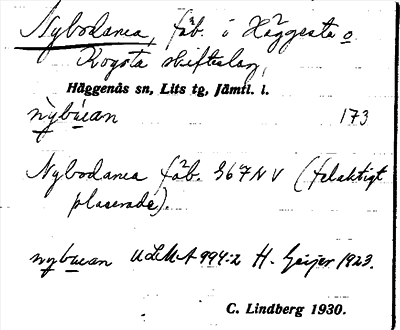 Nybodarna, fäb. i Häggesta o
Kogsta skifteslag,
Häggenås sn, Lits tg, Jämtl. l.
nỳbúɐan 173
Nybodarna fäb. 367 NV (felaktigt
placerade).
nybuɐan ULMA 994:2 H. Geijer 1923.
C. Lindberg 1930.